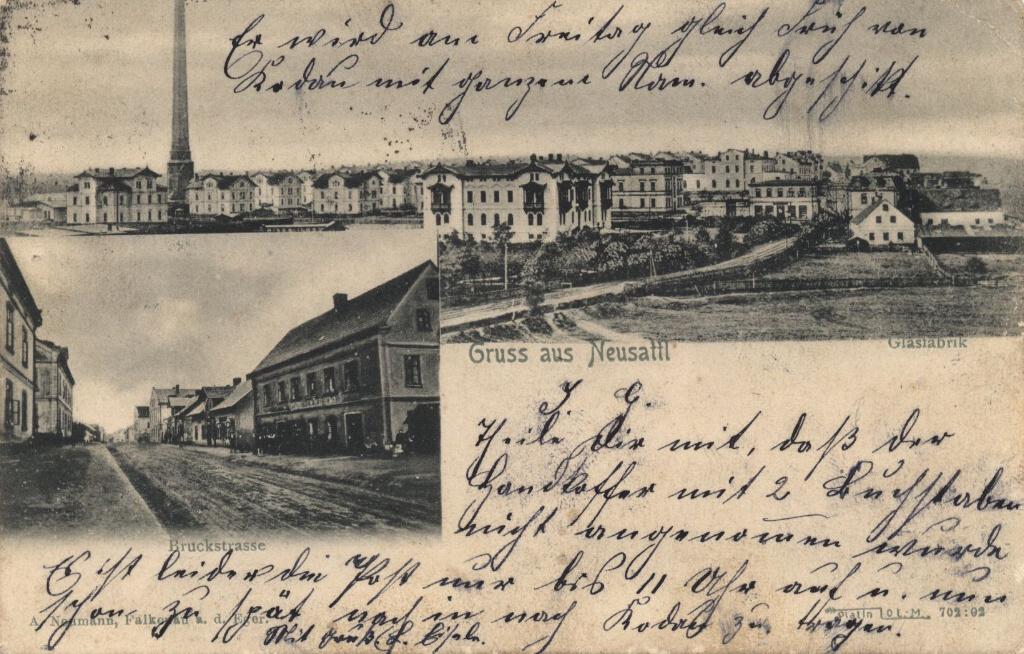 Er wird am Freitag gleich Früh von
Kodau mit ganzem Nam. abgeschikt.
Gruss aus Neusattl
Glasfabrik
Bruckstrasse
Theile Dir mit, daß der
Handkoffer mit 2 Buchstaben
nicht angenomen wurde
Es ist leider die Post nur bis 11 Uhr auf u. nun
schon zu spät nach in nach Kodau zu tragen.
Mit Gruß
A. Neumann, Falkenau a. d. Eger.
702:02